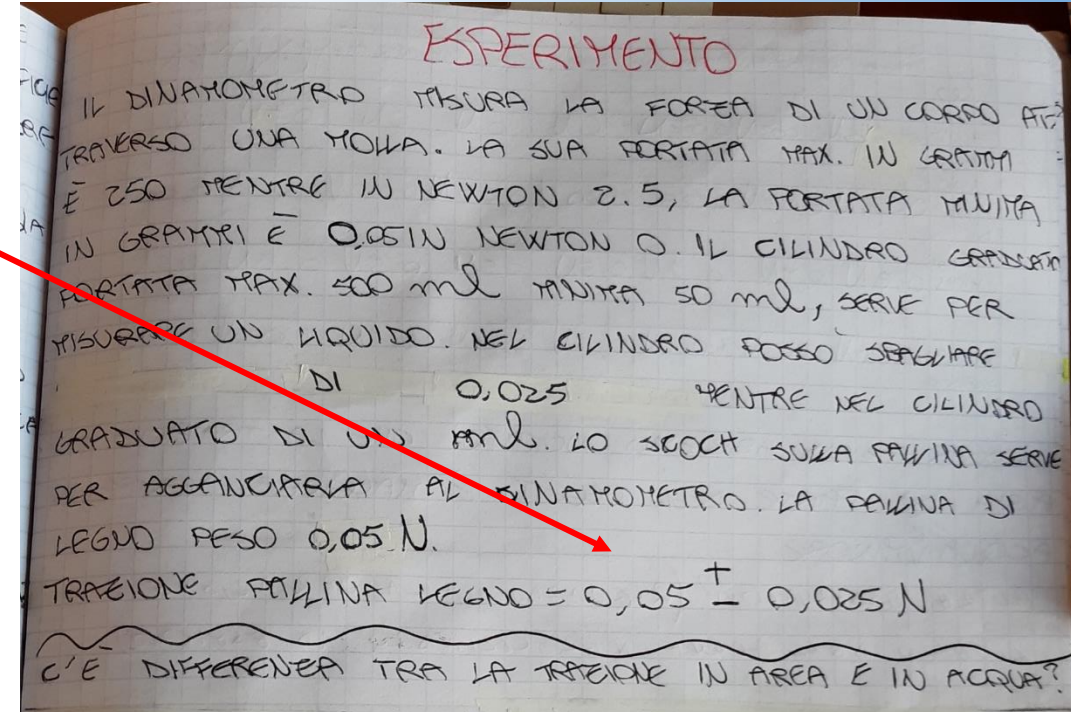 ESPERIMENTO
IL DINAMOMETRO MISURA LA FORZA DI UN CORPO AT-
TRAVERSO UNA MOLLA. LA SUA PORTATA MAX. IN GRAMMI
È 250 MENTRE IN NEWTON 2.5, LA PORTATA MINIMA
IN GRAMMI È 0,05 IN NEWTON 0. IL CILINDRO GRADUATO
PORTATA MAX. 500 ml MINIMA 50 ml, SERVE PER
MISURARE UN LIQUIDO. NEL CILINDRO POSSO SBAGLIARE
DI 0,025 MENTRE NEL CILINDRO
GRADUATO DI UN ml. LO SCOCH SULLA PALLINA SERVE
PER AGGANCIARLA AL DINAMOMETRO. LA PALLINA DI
LEGNO PESO 0,05 N.
TRAZIONE PALLINA LEGNO = 0,05 ± 0,025 N
C'È DIFFERENZA TRA LA TRAZIONE IN AREA E IN ACQUA?